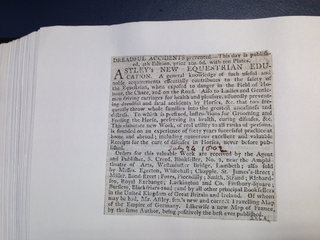 DREADFUL ACCIDENTS prevented.—This day is publish-
ed, 4th Edition, price 10s. 6d. with ten Plates,
ASTLEY'S NEW EQUESTRIAN EDU-
CATION. A general knowledge of such useful and
noble requirements essentially contributes to the safety of
the Equestrian, when exposed to danger in the Field of Ho-
nour, the Chace, and on the Road. Also to Ladies and Gentle-
men driving carriages for health and pleasure; essentially prevent-
ing dreadful and fatal accidents by Horses, &c. that too fre-
quently throw whole families into the greatest anxieties and
distress. To which is prefixed, Instructions for Grooming and
Feeding the Horse, preserving his health, curing diseases, &c.
This elaborate new Work, of real utility to all ranks of persons,
is founded on an experience of forty years successful practice at
home and abroad; including numerous excellent and valuable
Receipts for the cure of diseases in Horses, never before pub-
lished.
July 14 1802
Orders for this valuable Work are received by the Agent
and Publisher, S. Creed, Bookseller, No. 1, near the Amphi-
theatre of Arts, Westminster Bridge, Lambeth; also sold
by Messrs. Egerton, Whitehall; Chapple, St. James's-street;
Miller, Bond-street; Fores, Piccadilly; Smith, Strand; Richard-
son, Royal Exchange; Lackington and Co. Finsbury-square;
Burslem, Blackfriars-road; and by all other principal Booksellers
in the United Kingdom of Great Britain and Ireland. Of whom
may be had, Mr. Astley Sen.'s new and correct Travelling Map
of the Empire of Germany. Likewise a new Map of France,
by the same Author, being positively the best ever published.